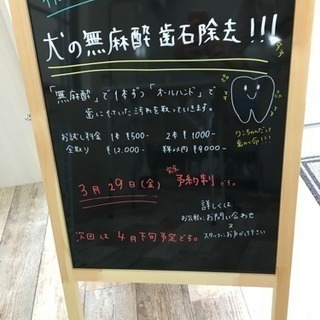 犬の無麻酔歯石除去!!!
「無麻酔」で1本ずつ「オールハンド」で
歯に付いた汚れを取っていきます。
お試し料金 1本 ¥500- 2本 ¥1000-
全取り ¥12,000- 半年以内 ¥9,000-
ワンちゃんだって
3月29日(金) 完全予約制です。
詳しくは
お気軽にお問い合わせ
スタッフにお声がけ下さい
次回は4月下旬予定です。